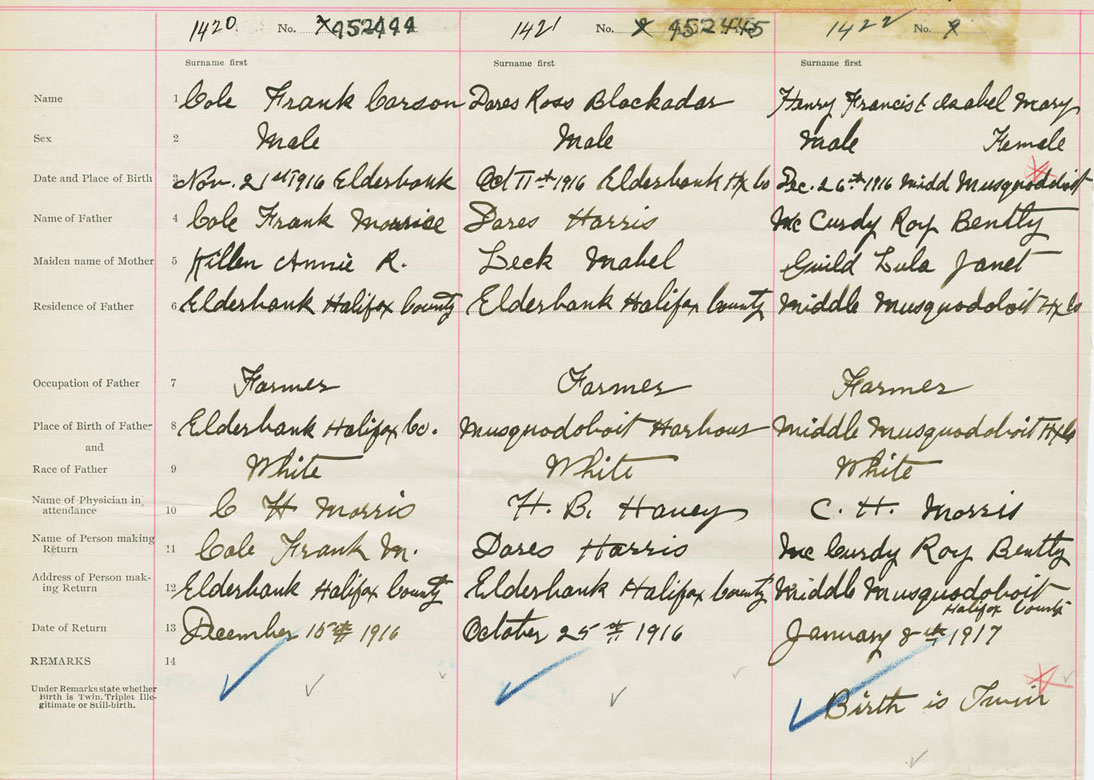 1420 No. X 952444 1421 No. X 952445 1422 No. X
Surname first Surname first Surname first
Name 1 Cole Frank Carson Dares Ross Blackadar Henry Francis & Isabel Mary
Sex 2 Male Male Male Female
Date and Place of Birth 3 Nov. 21st 1916 Elderbank Oct 11th 1916 Elderbank Hx Co Dec. 26th 1916 Midd Musquodoboit
Name of Father 4 Cole Frank Dares Harris Mc Curdy Roy Bently
Maiden name of Mother 5 Killen Annie R. Leck Mabel Guild Lula Janet
Residence of Father 6 Elderbank Halifax County Elderbank Halifax County Middle Musquodoboit Hx Co
Occupation of Father 7 Farmer Farmer Farmer
Place of Birth of Father 8 Elderbank Halifax Co. Musquodoboit Harbour Middle Musquodoboit Hx Co
and
Race of Father 9 White White White
Name of Physician in
attendance 10 C H Morris H. B. Havey C. H. Morris
Name of Person making
Return 11 Cole Frank M. Dares Harris Mc Curdy Roy Bently
Address of Person mak-
ing Return 12 Elderbank Halifax County Elderbank Halifax County Middle Musquodoboit
Halifax County
Date of Return 13 December 15th 1916 October 25th 1916 January 8th 1917
REMARKS 14
Under Remarks state whether
Birth is Twin, Triplet Ille-
gitimate or Still-birth.
Birth is Twin